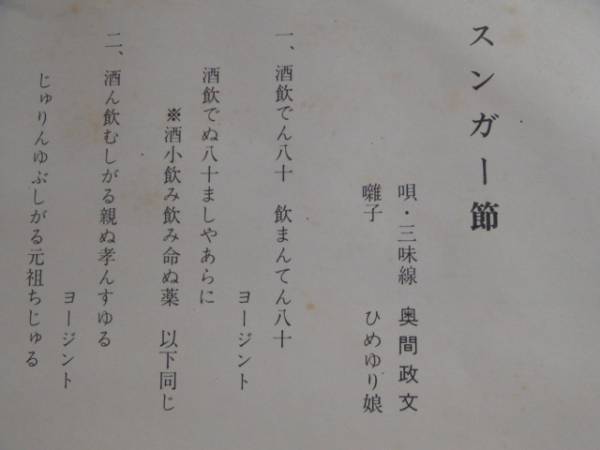 スンガー節
唄・三味線 奥間政文
囃子 ひめゆり娘
一、酒飲でん八十 飲まんてん八十
ヨージント
酒飲でぬ八十ましやあらに
※酒小飲み飲み命ぬ薬 以下同じ
二、酒ん飲むしがる親ぬ孝んすゆる
ヨージント
じゅりんゆぶしがる元祖ちじゅる